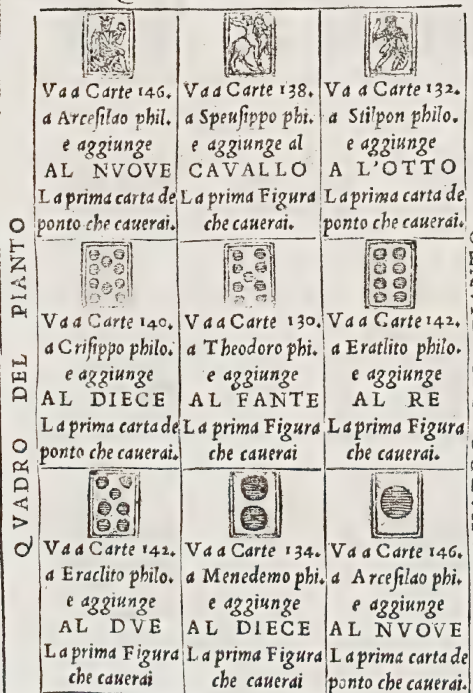 QVADRO DEL PIANTO
Va a Carte 146.
a Arceſilao phil.
e aggiunge
AL NVOVE
La prima carta de
ponto che cauerai.
Va a Carte 138.
a Speuſippo phi.
e aggiunge al
CAVALLO
La prima Figura
che cauerai.
Va a Carte 132.
a Stilpon philo.
e aggiunge
A L'OTTO
La prima carta de
ponto che cauerai.
Va a Carte 140.
a Criſippo philo.
e aggiunge
AL DIECE
La prima carta de
ponto che cauerai.
Va a Carte 130.
a Theodoro phi.
e aggiunge
AL FANTE
La prima Figura
che cauerai
Va a Carte 142.
a Eratlito philo.
e aggiunge
AL RE
La prima Figura
che cauerai.
Va a Carte 142.
a Eraclito philo.
e aggiunge
AL DVE
La prima Figura
che cauerai
Va a Carte 134.
a Menedemo phi.
e aggiunge
AL DIECE
La prima Figura
che cauerai
Va a Carte 146.
a Arceſilao phi.
e aggiunge
AL NVOVE
La prima carta de
ponto che cauerai.